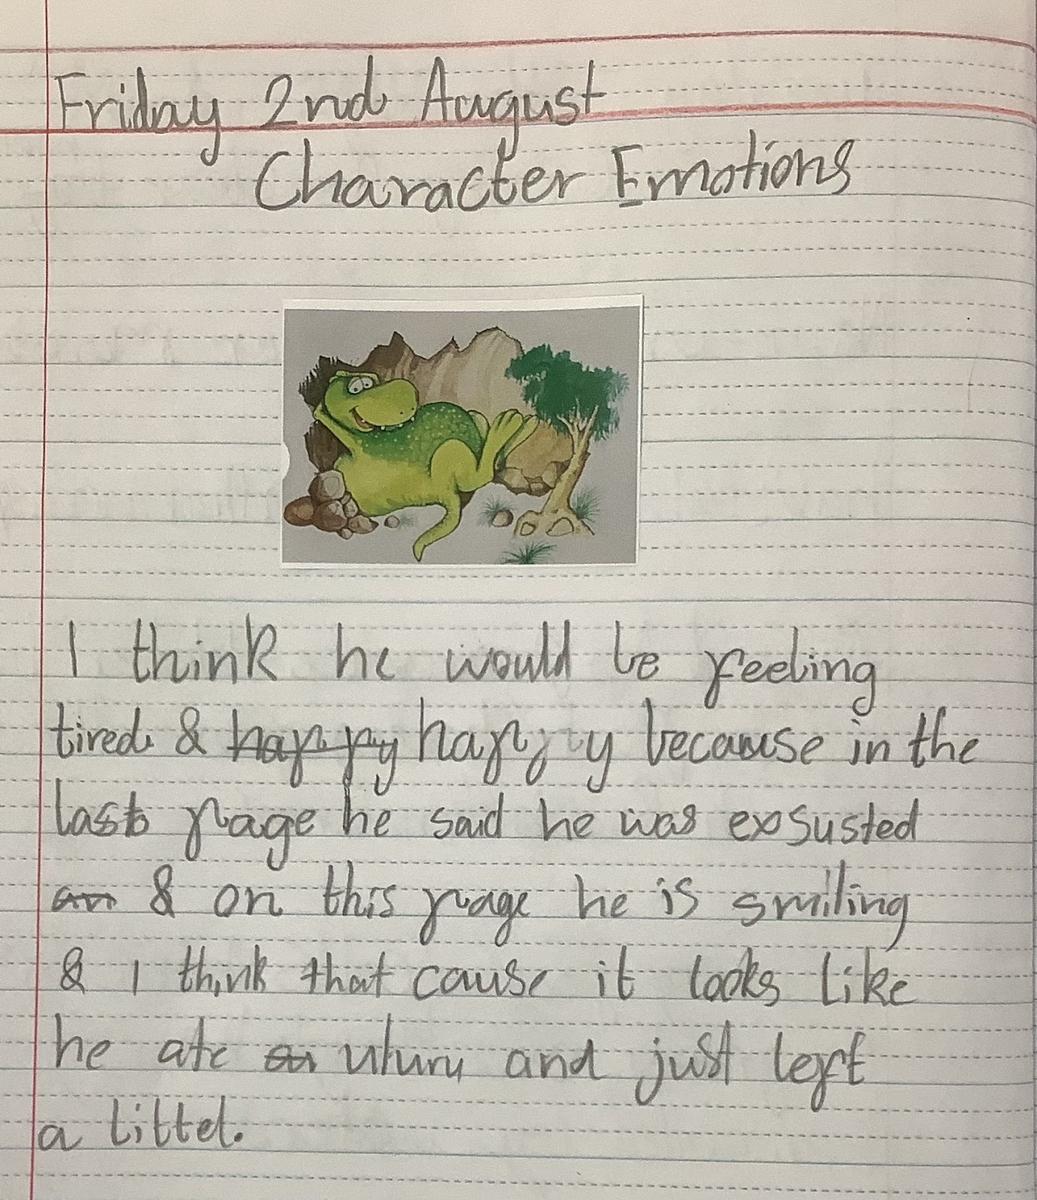 Friday 2nd August
Character Emotions
I think he would be feeling
tired & happy happy because in the
last page he said he was exsusted
an & on this page he is smiling
& I think that cause it looks like
he ate uluru and just left
a littel.